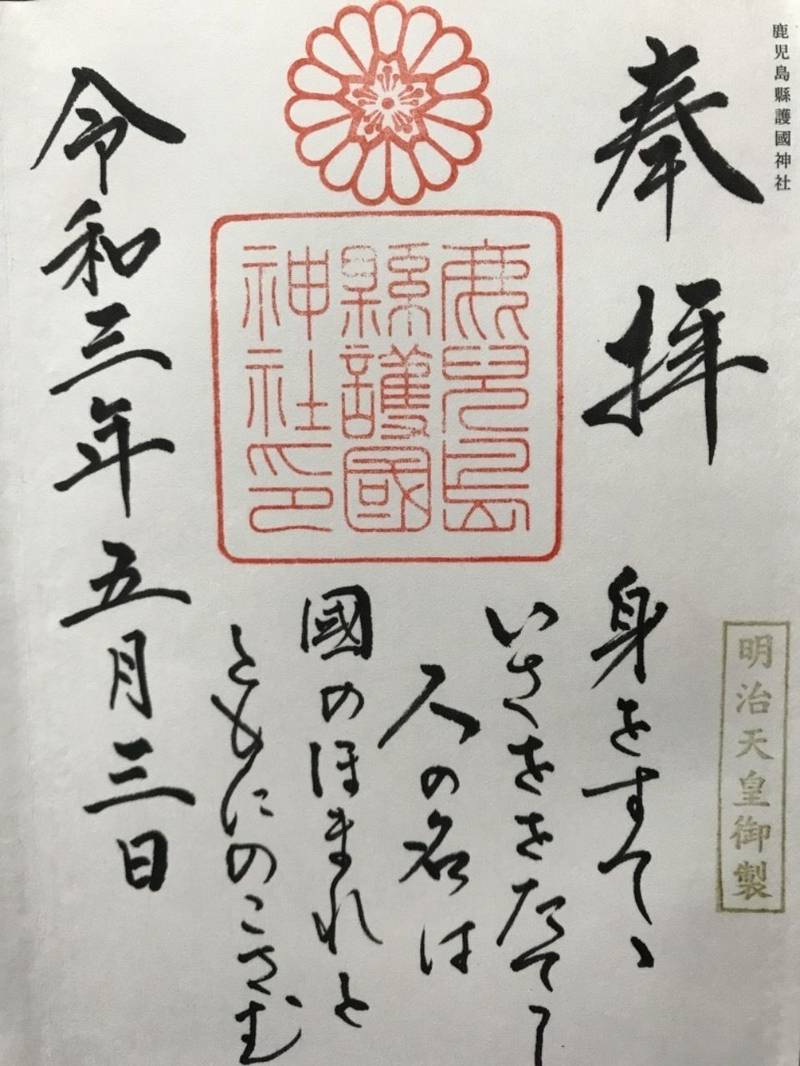 鹿児島縣護國神社
奉拝
明治天皇御製
身をすてゝ
いさををたてし
人の名は
國のほまれと
ともにのこさむ
鹿児島
縣護國
神社印
令和三年五月三日